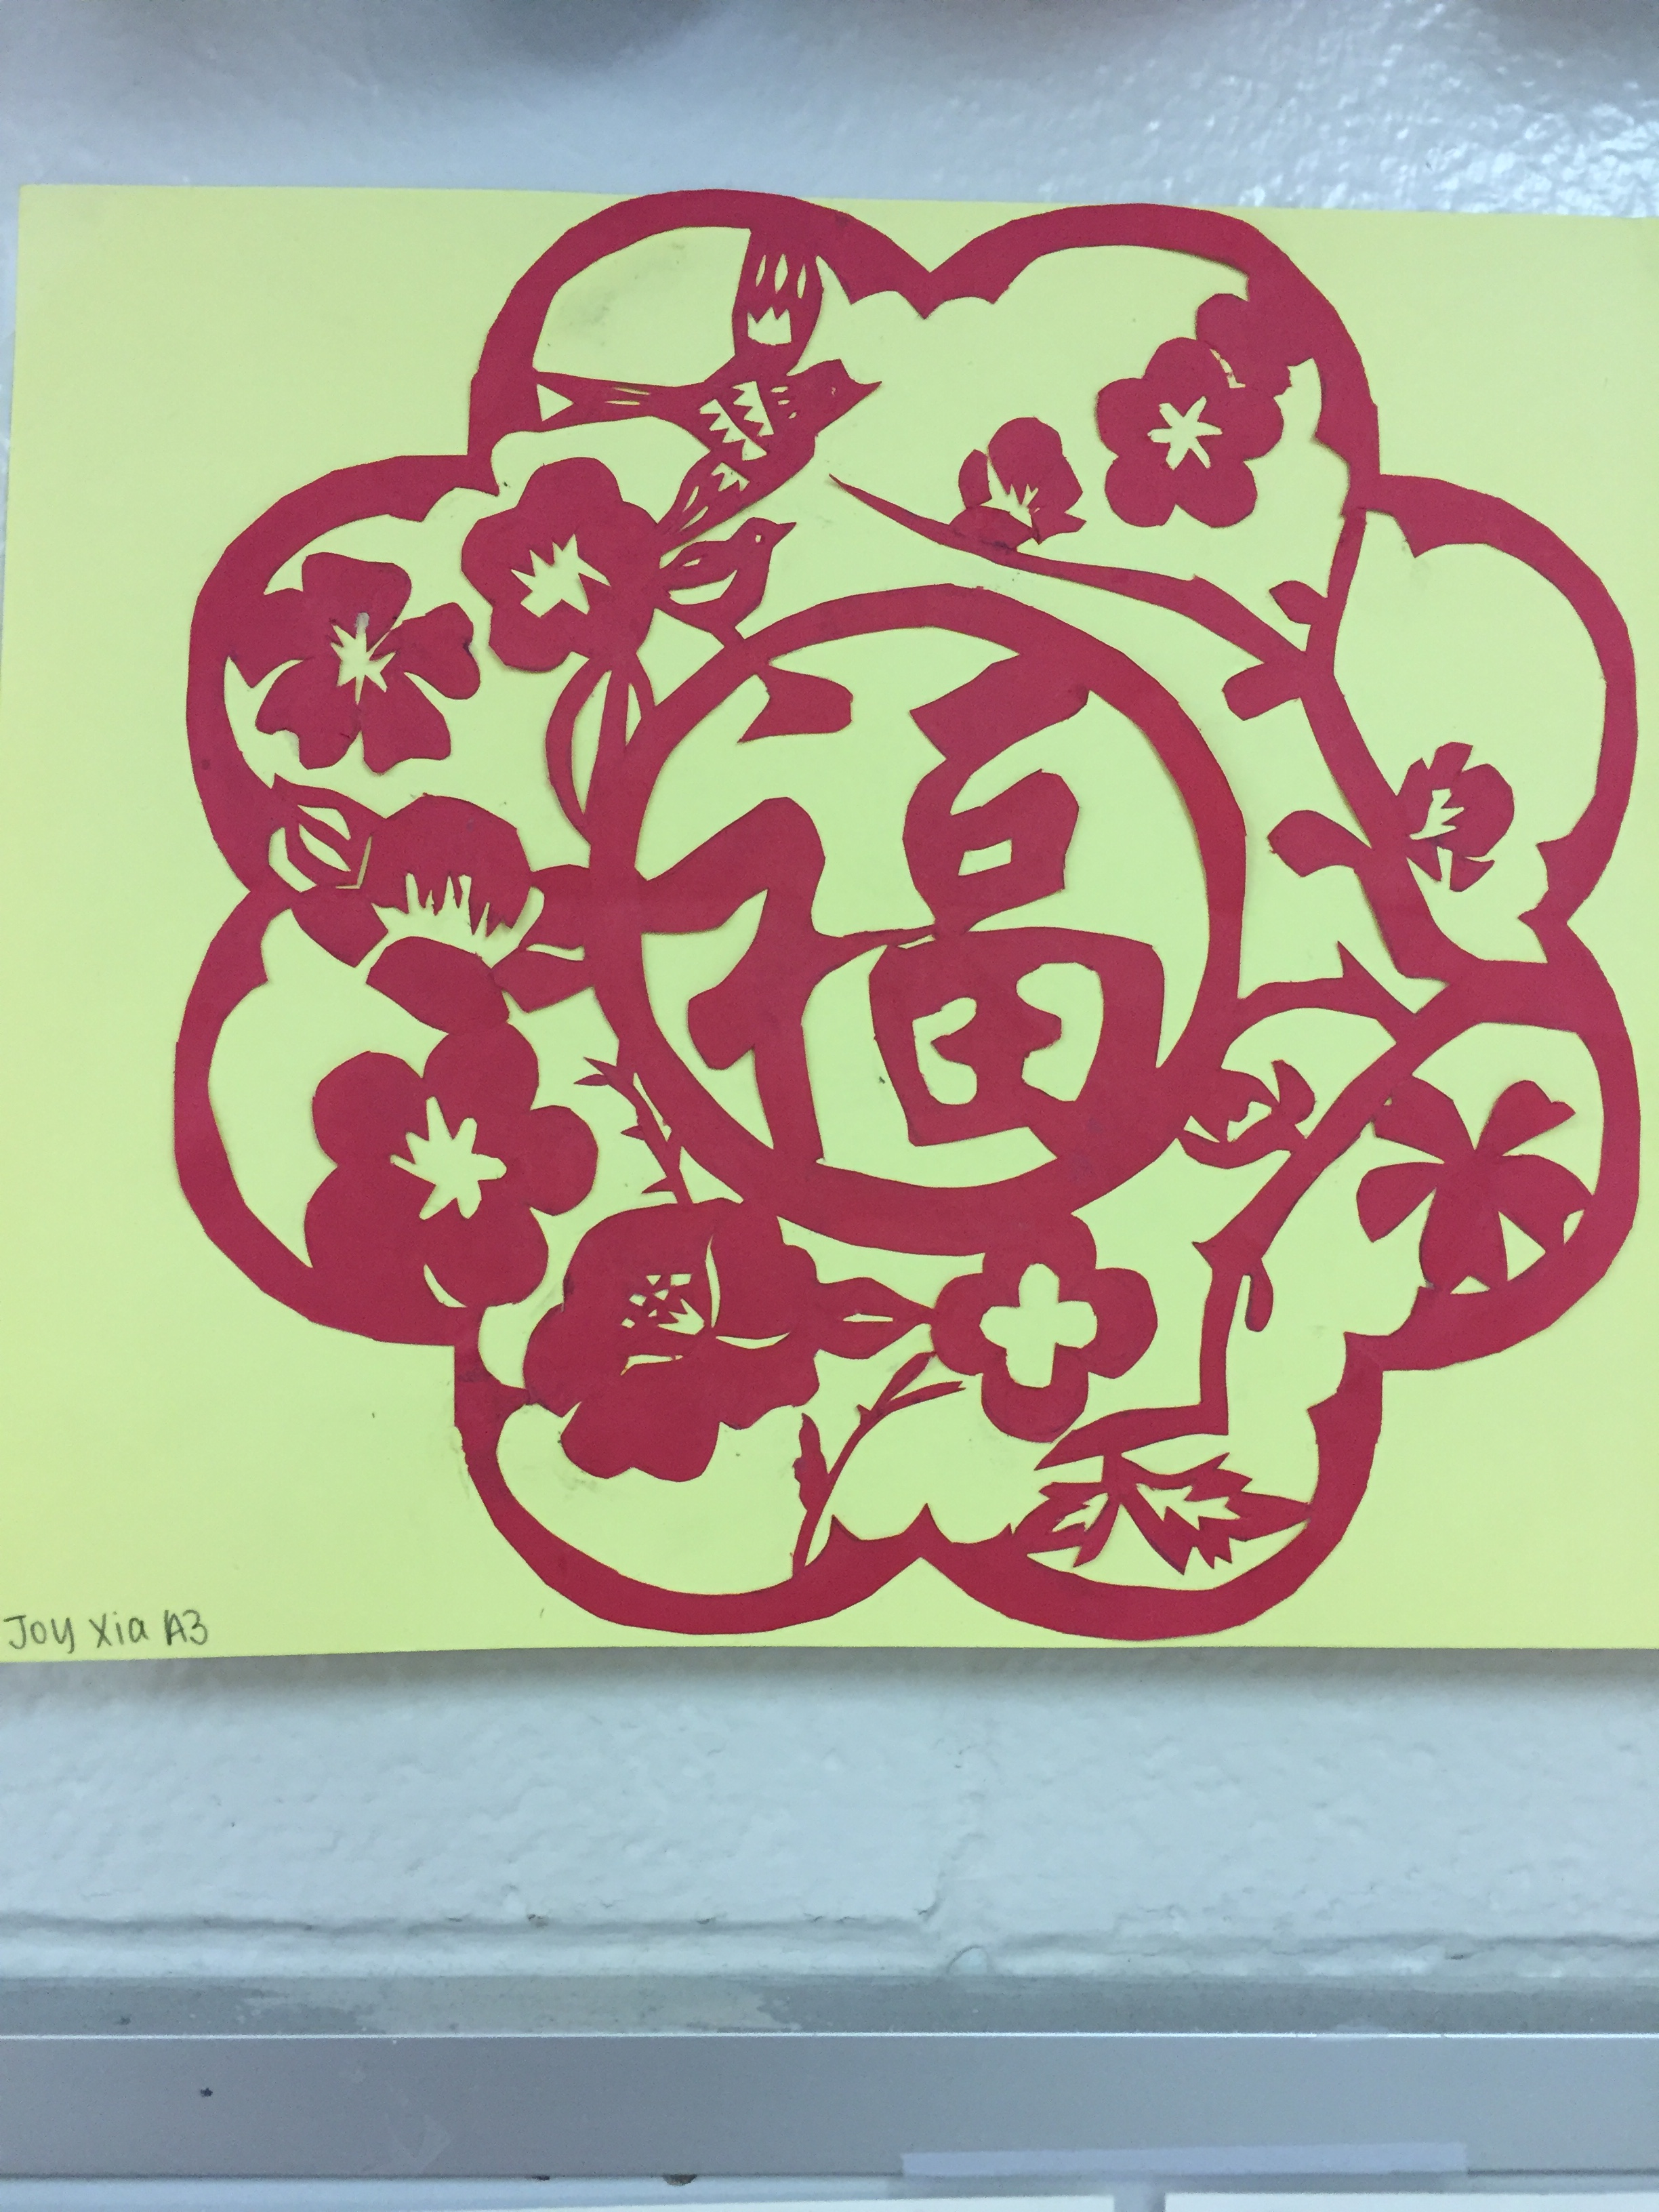 福
Joy Xia A3